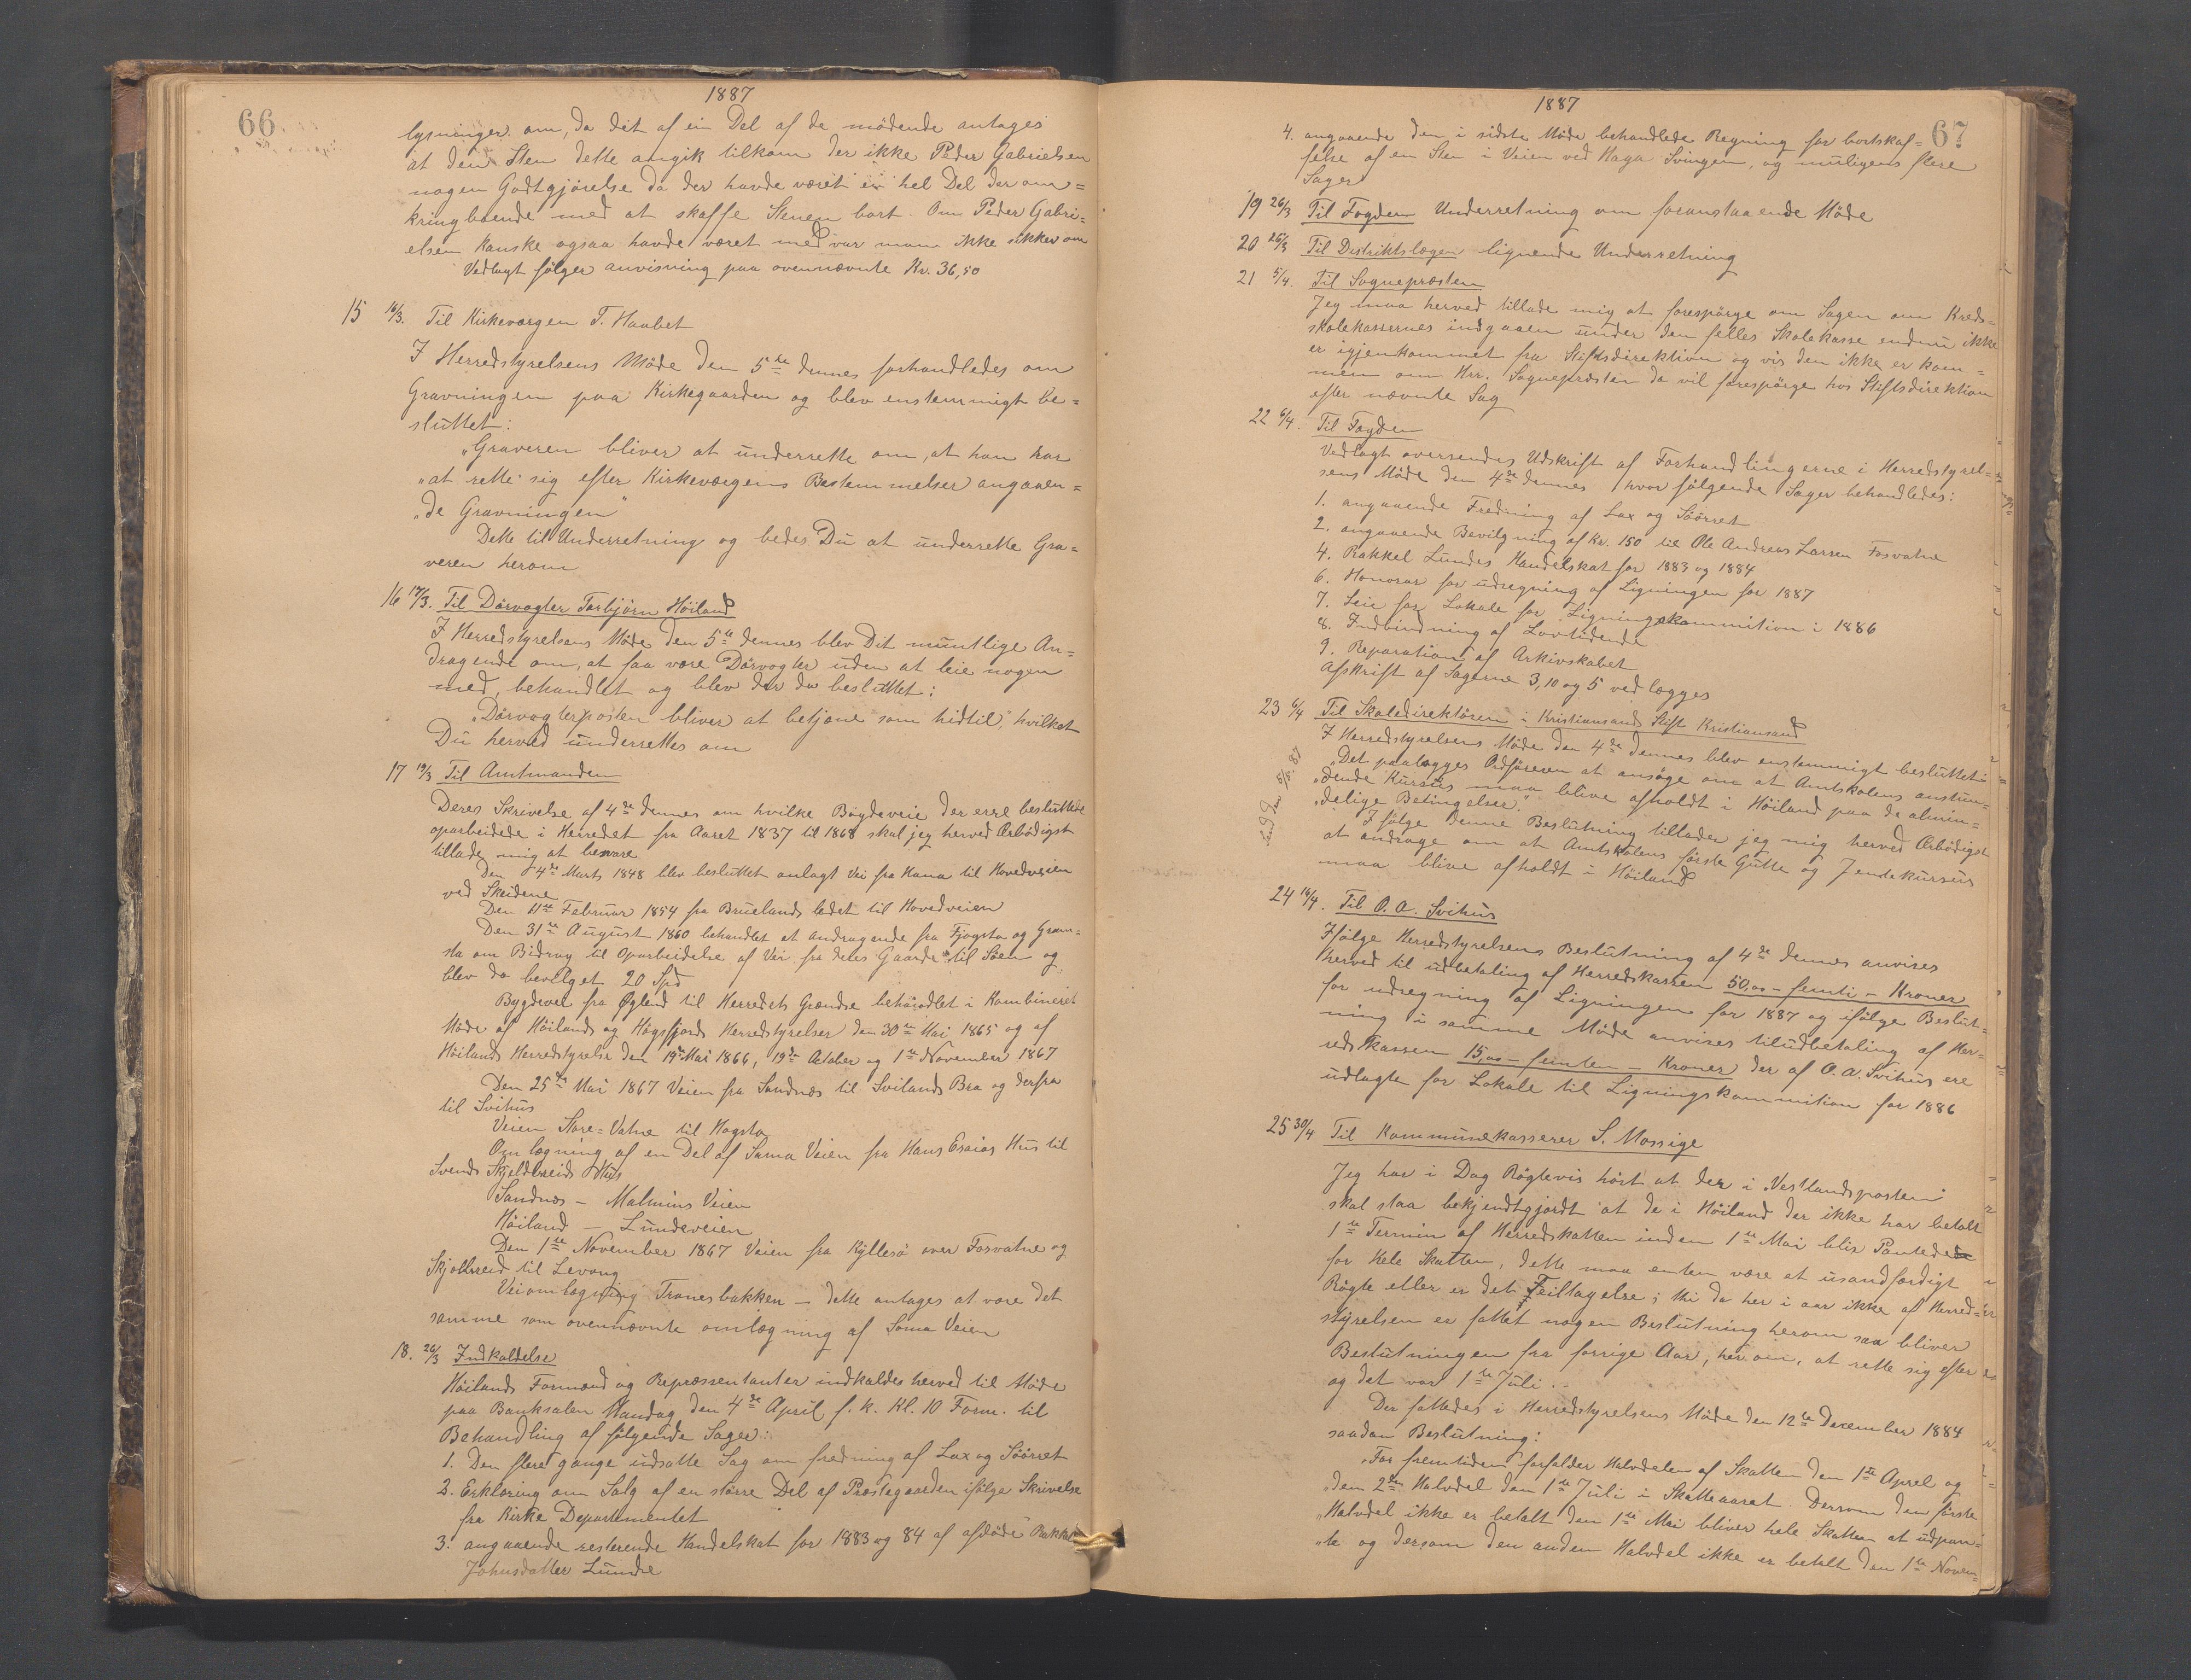 66.
1887
lysninger om, da det af ein Del af de mödende antages
at den Sten dette angik tilkom der ikke Peder Gabrielsen
nogen Godtgjörelse da der havde været ein hel Del der om=
kringboende med at skaffe Stenen bort. Om Peder Gabri=
elsen kanske ogsaa havde været med var man ikke sikker om
Vedlagt fölger anvisning paa ovennævnte Kr. 36,50
15 16/3. Til Kirkeværgen T. Haabet
I Herredstyrelsens Möde den 5te dennes forhandledes om
Gravningen paa Kirkegaarden og blev enstemmigt be=
sluttet:
„Graveren bliver at underrette om, at han har
„at rette sig efter Kirkevægens Bestemmelser angaaen=
„de Gravningen“
Dette til Underretning og bedes Du at underrette Gra=
veren herom
16 17/3. Til Dörvogter Torbjörn Höiland
I Herredstyrelsens Möde den 5te dennes blev Dit muntlige An=
dragende om, at faa være Dörvogter uden at leie nogen
med, behandlet og blev der da besluttet:
„Dörvogterposten bliver at betjene som hidtil, hvilket
Du herved underrettes om
17 19/3 Til Amtmanden
Deres Skrivelse af 4de dennes om hvilke Bygdeveie der erre besluttede
oparbeidede i Herredet fra Aaret 1837 til 1868 skal jeg herved Ærbödigst
tillade mig at besvare
Den 4de Marts 1848 blev besluttet anlagt Vei fra Hana til Hovedveien
ved Skeidene
Den 11te Februar 1854 fra Bruelands ledet til Hovedveien
Den 31te August 1860 behandlet et andragende fra Fjogstad og Gram=
sta om Bidrag til Oparbeidelse af Vei fra deles Gaarde til Söen og
blev da bevilget 20 Spd
Bygdevei fra Öglend til Herredets Grændse behandlet i Kombineret
Möde af Höilands og Högsfjords Herredstyrelser den 30te Mai 1865 og af
Höilands Herredstyrelse den 19de Mai 1866, 19de Oktober og 1te November 1867
Den 25de Mai 1867 Veien fra Sandnæs til Svilands Bra og derfra
til Svihus
Veien Store=Vatne til Hogsta
Omlægning af en Del af Soma Veien fra Hans Esaias Hus til
Svends Skjelbreids Hus
Sandnæs – Malmins Veien
Höiland – Lundeveien
Den 1te November 1867 Veien fra Kyllesö over Fosvatne og
Skjelbreid til Levang
Veiomlægning Tronesbakken – dette antages at være det
samme som ovennævnte omlægning af Soma Veien
18. 26/3 Indkaldelse
Höilands Formænd og Repræsentanter indkaldes herved til Möde
paa Banksalen Mandag den 4de April f. k. Kl. 10 Form. til
Behandling af fölgende Sager:
1. Den flere gange udsatte Sag om fredning af Lax og Söörret
2. Erklæring om Salg af en större Del af Præstegaarden ifölge Skrivelse
fra Kirke Departementet
3. angaaende resterende Handelskat for 1883 og 84 af afdöde Rakkel
Johnsdatter Lunde
1887
67
4. angaaende den i sidste Möde behandlede Regning for bortskaf=
felse af en Sten i Veien ved Haga Svingen, og muligens flere
Sager
19 26/3 Til Fogden Underretning om foranstaaende Möde
20 26/3 Til Distriktslægen lignende Underretning
21 5/4. Til Sognepræsten
Jeg maa herved tillade mig at forespörge om Sagen om Kreds=
skolekassernes indgaaen under den felles Skolekasse endnu ikke
er igjenkommet fra Stiftsdirektion og vis den ikke er kom=
men om Hr. Sognepræsten da vil forespörge hos Stiftsdirektion
efter nævnte Sag
22 6/4. Til Fogden
Vedlagt oversendes Udskrift af Forhandlingerne i Herredstyrel=
sens Möde den 4de dennes hvor fölgende Sager behandledes:
1. angaaende Fredning af Lax og Söörret
2. angaaende Bevilgning af Kr. 150 til Ole Andreas Larsen Fosvatne
4. Rakkel Lundes Handelskat for 1883 og 1884
6. Honorar for udregning af Ligningen for 1887
7. Leie for Lokale for Ligningskommition i 1886
8. Indbindning af Lovtidende
9. Reparation af Arkivskabet
Afskrift af Sagerne 3, 10 og 5 vedlægges
23 6/4 Til Skoledirektören i Kristiansands Stift Kristiansand
I Herredstyrelsens Möde den 4de dennes blev enstemmigt besluttet:
„Det paalægges Ordföreren at ansöge om at Amtskolens anstun=
„dende Kursus maa blive afholdt i Höiland paa de almin=
„delige Betingelser.“
Ifölge denne Beslutning tillader jeg mig herved Ærbödigst
at andrage om at Amtskolens förste Gutte og Jentekursus
maa blive afholdt i Höiland
5/5. 87
24 14/4. Til O. A. Svihus
Ifölge Herredstyrelsens Beslutning af 4de dennes anvises
herved til udbetaling af Herredskassen 50,00 – femti – Kroner
for udregning af Ligningen for 1887 og ifölge Beslut=
ning i samme Möde anvises til udbetaling af Her=
redskassen 15,00 – femten – Kroner der af O. A. Svihus ere
udlagte for Lokale til Ligningskommition for 1886
25 30/4 Til Kommunekasserer S. Mossige
Jeg har i Dag Rögtevis hört at der i „Vestlandsposten“
skal staa bekjendtgjordt at de i Höiland der ikke har betalt
1te Termin af Herredskatten inden 1te Mai blir Pantede
for Hele Skatten, dette maa enten være et usandfærdigt
Rögte eller er det Feiltagelse; thi da her i aar ikke af Herred=
styrelsen er fattet nogen Beslutning herom saa bliver
Beslutningen fra forrige Aar, herom, at rette sig efter
og det var 1te Juli.
Der fattedes i Herredstyrelsens Möde den 12te December 1884
saadan Beslutning:
„For fremtiden forfalder Halvdelen af Skatten den 1te April og
„den 2den Halvdel den 1te Juli i Skatteaaret. Dersom den förste
„Halvdel ikke er betalt den 1te Mai bliver hele Skatten at udpan=
„te og dersom den anden Halvdel ikke er betalt den 1te Novem=